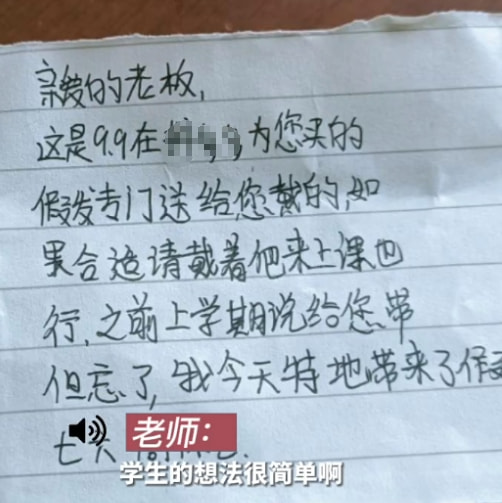 亲爱的老板,
这是9.9在 为您买的
假发专门送给您戴的,如
果合适请戴着他来上课也
行,之前上学期说给您带
但忘了,我今天特地带来了假
老师:
学生的想法很简单啊